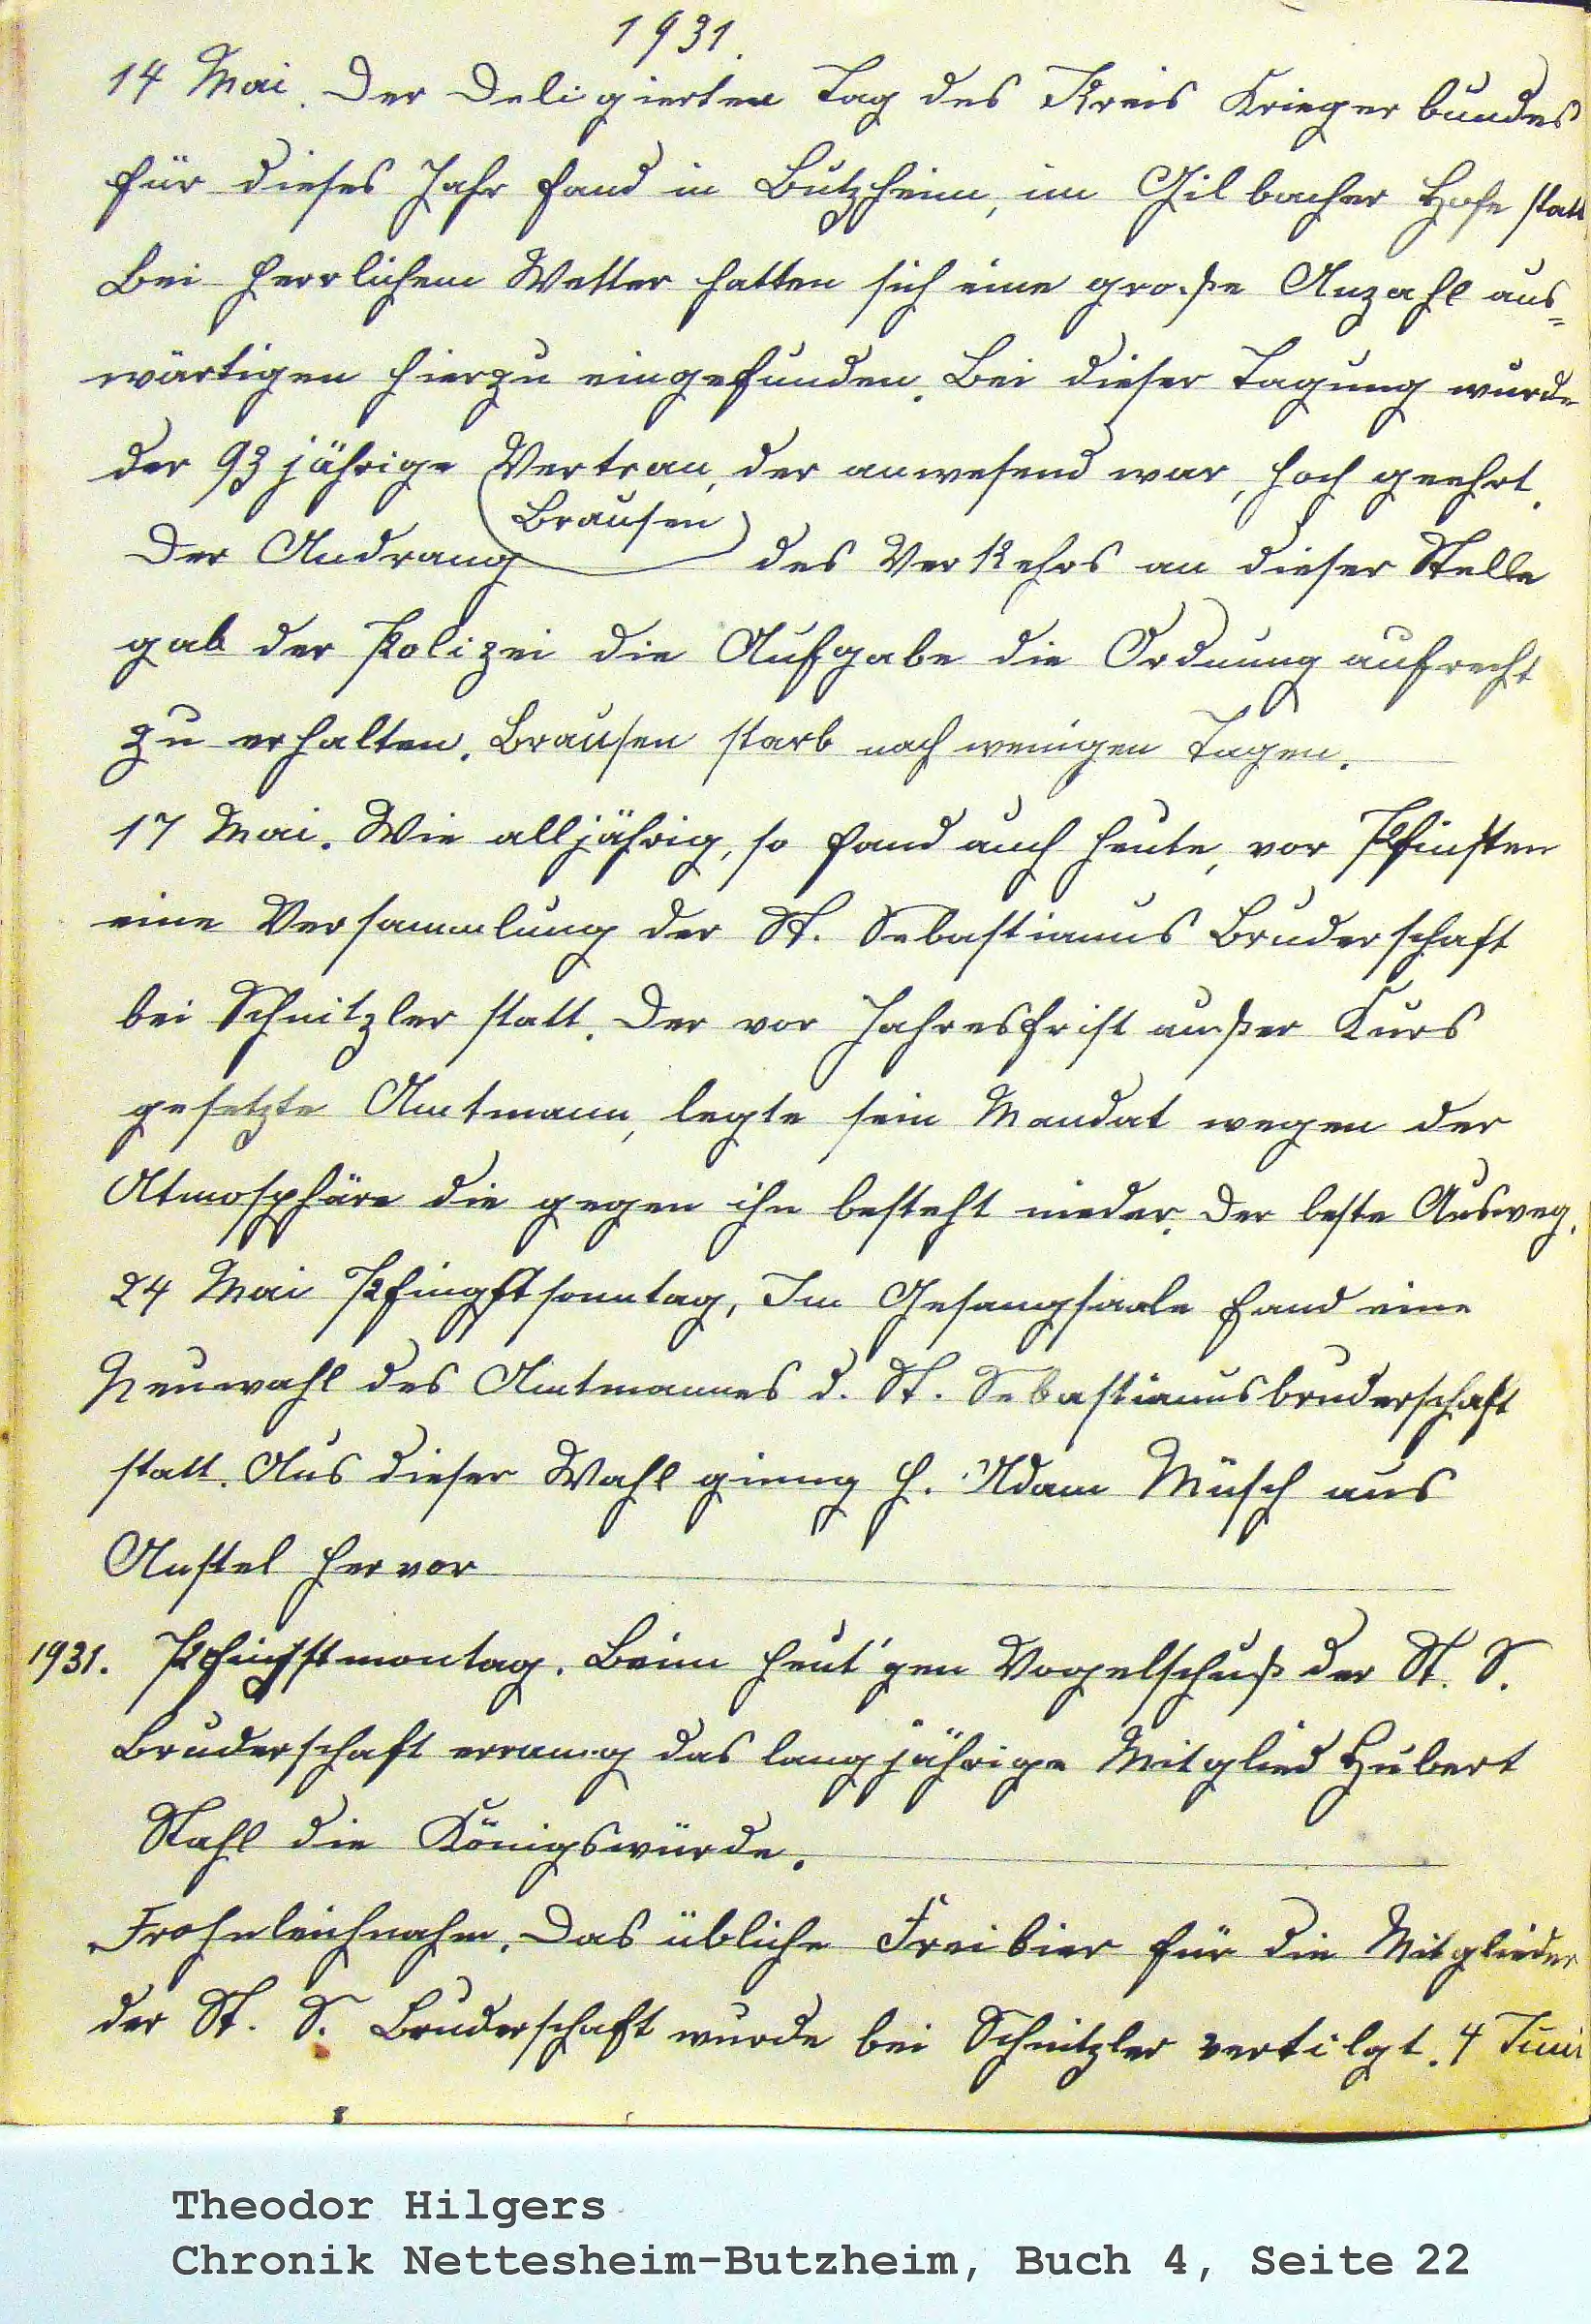 1931.
14 Mai. Der Deligierten Tag des Kreis Krieger bundes
für dieses Jahr fand in Butzheim, im Gilbacher Hofe statt
Bei herrlichem Wetter hatten sich eine große Anzahl aus=
wärtigen hierzu eingefunden. Bei dieser Tagung wurde
der 93 jährige Vertran, der anwesend war, hoch geehrt.
Brausen
Der Andrang des Verkehrs an dieser Stelle
gab der Polizei die Aufgabe die Ordnung aufrecht
zu erhalten. Brausen starb nach wenigen Tagen.
17 Mai. Wie alljährig, so fand auch heute, vor Pfinsten
eine Versammlung der St. Sebastianus Bruderschaft
bei Schnitzler statt. Der vor Jahresfrist außer Kurs
gesetzte Amtmann, legte sein Mandat wegen der
Atmosphäre die gegen ihn besteht nieder. Der beste Ausweg.
24 Mai Pfingstsonntag, Im Gesangsaale fand eine
Neuwahl des Amtmannes d. St. Sebastianusbruderschaft
statt. Aus dieser Wahl ginng H. Adam Müsch aus
Anstel hervor
1931. Pfingstmontag. Beim heut'gen Vogelschuß der St. S.
Bruderschaft errang das langjährige Mitglied Hubert
Stahl die Königswürde.
Frohnleichnahm. Das übliche Freibier für die Mitglieder
der St. S. Bruderschaft wurde bei Schnitzler vertilgt. 4 Juni
Theodor Hilgers
Chronik Nettesheim-Butzheim, Buch 4, Seite 22